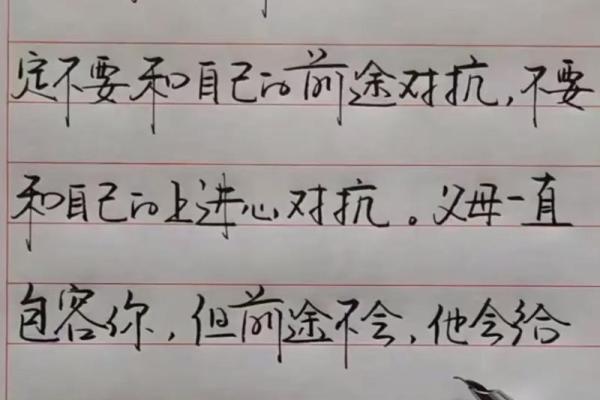 定不要和自己的前途对抗，不要
和自己的上进心对抗。父母一直
包容你，但前途不会，他会给